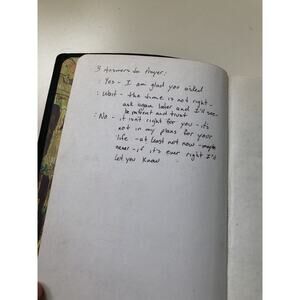 3 Answers to Prayer:
: Yes - I am glad you asked
: Wait - the time is not right -
ask again later and I'll see -
be patient and trust
: No - it isn't right for you - it's
not in my plans for your
life - at least not now - maybe
never - if it's ever right I'll
let you know